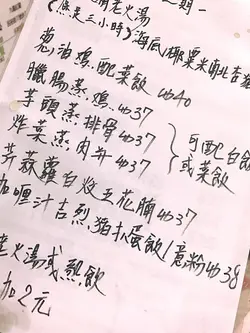 老火湯
(煲足三小時)海底椰粟米
葱油鷄配菜飯 $40
臘腸蒸鷄 $37
芋頭蒸排骨 $37
炸菜蒸肉弁 $37
}可配白飯
或菜飯
蘿白炆五花腩 $37
加喱汁吉烈猪扒蛋飯/意粉 $38
老火湯或熱飲
加2元